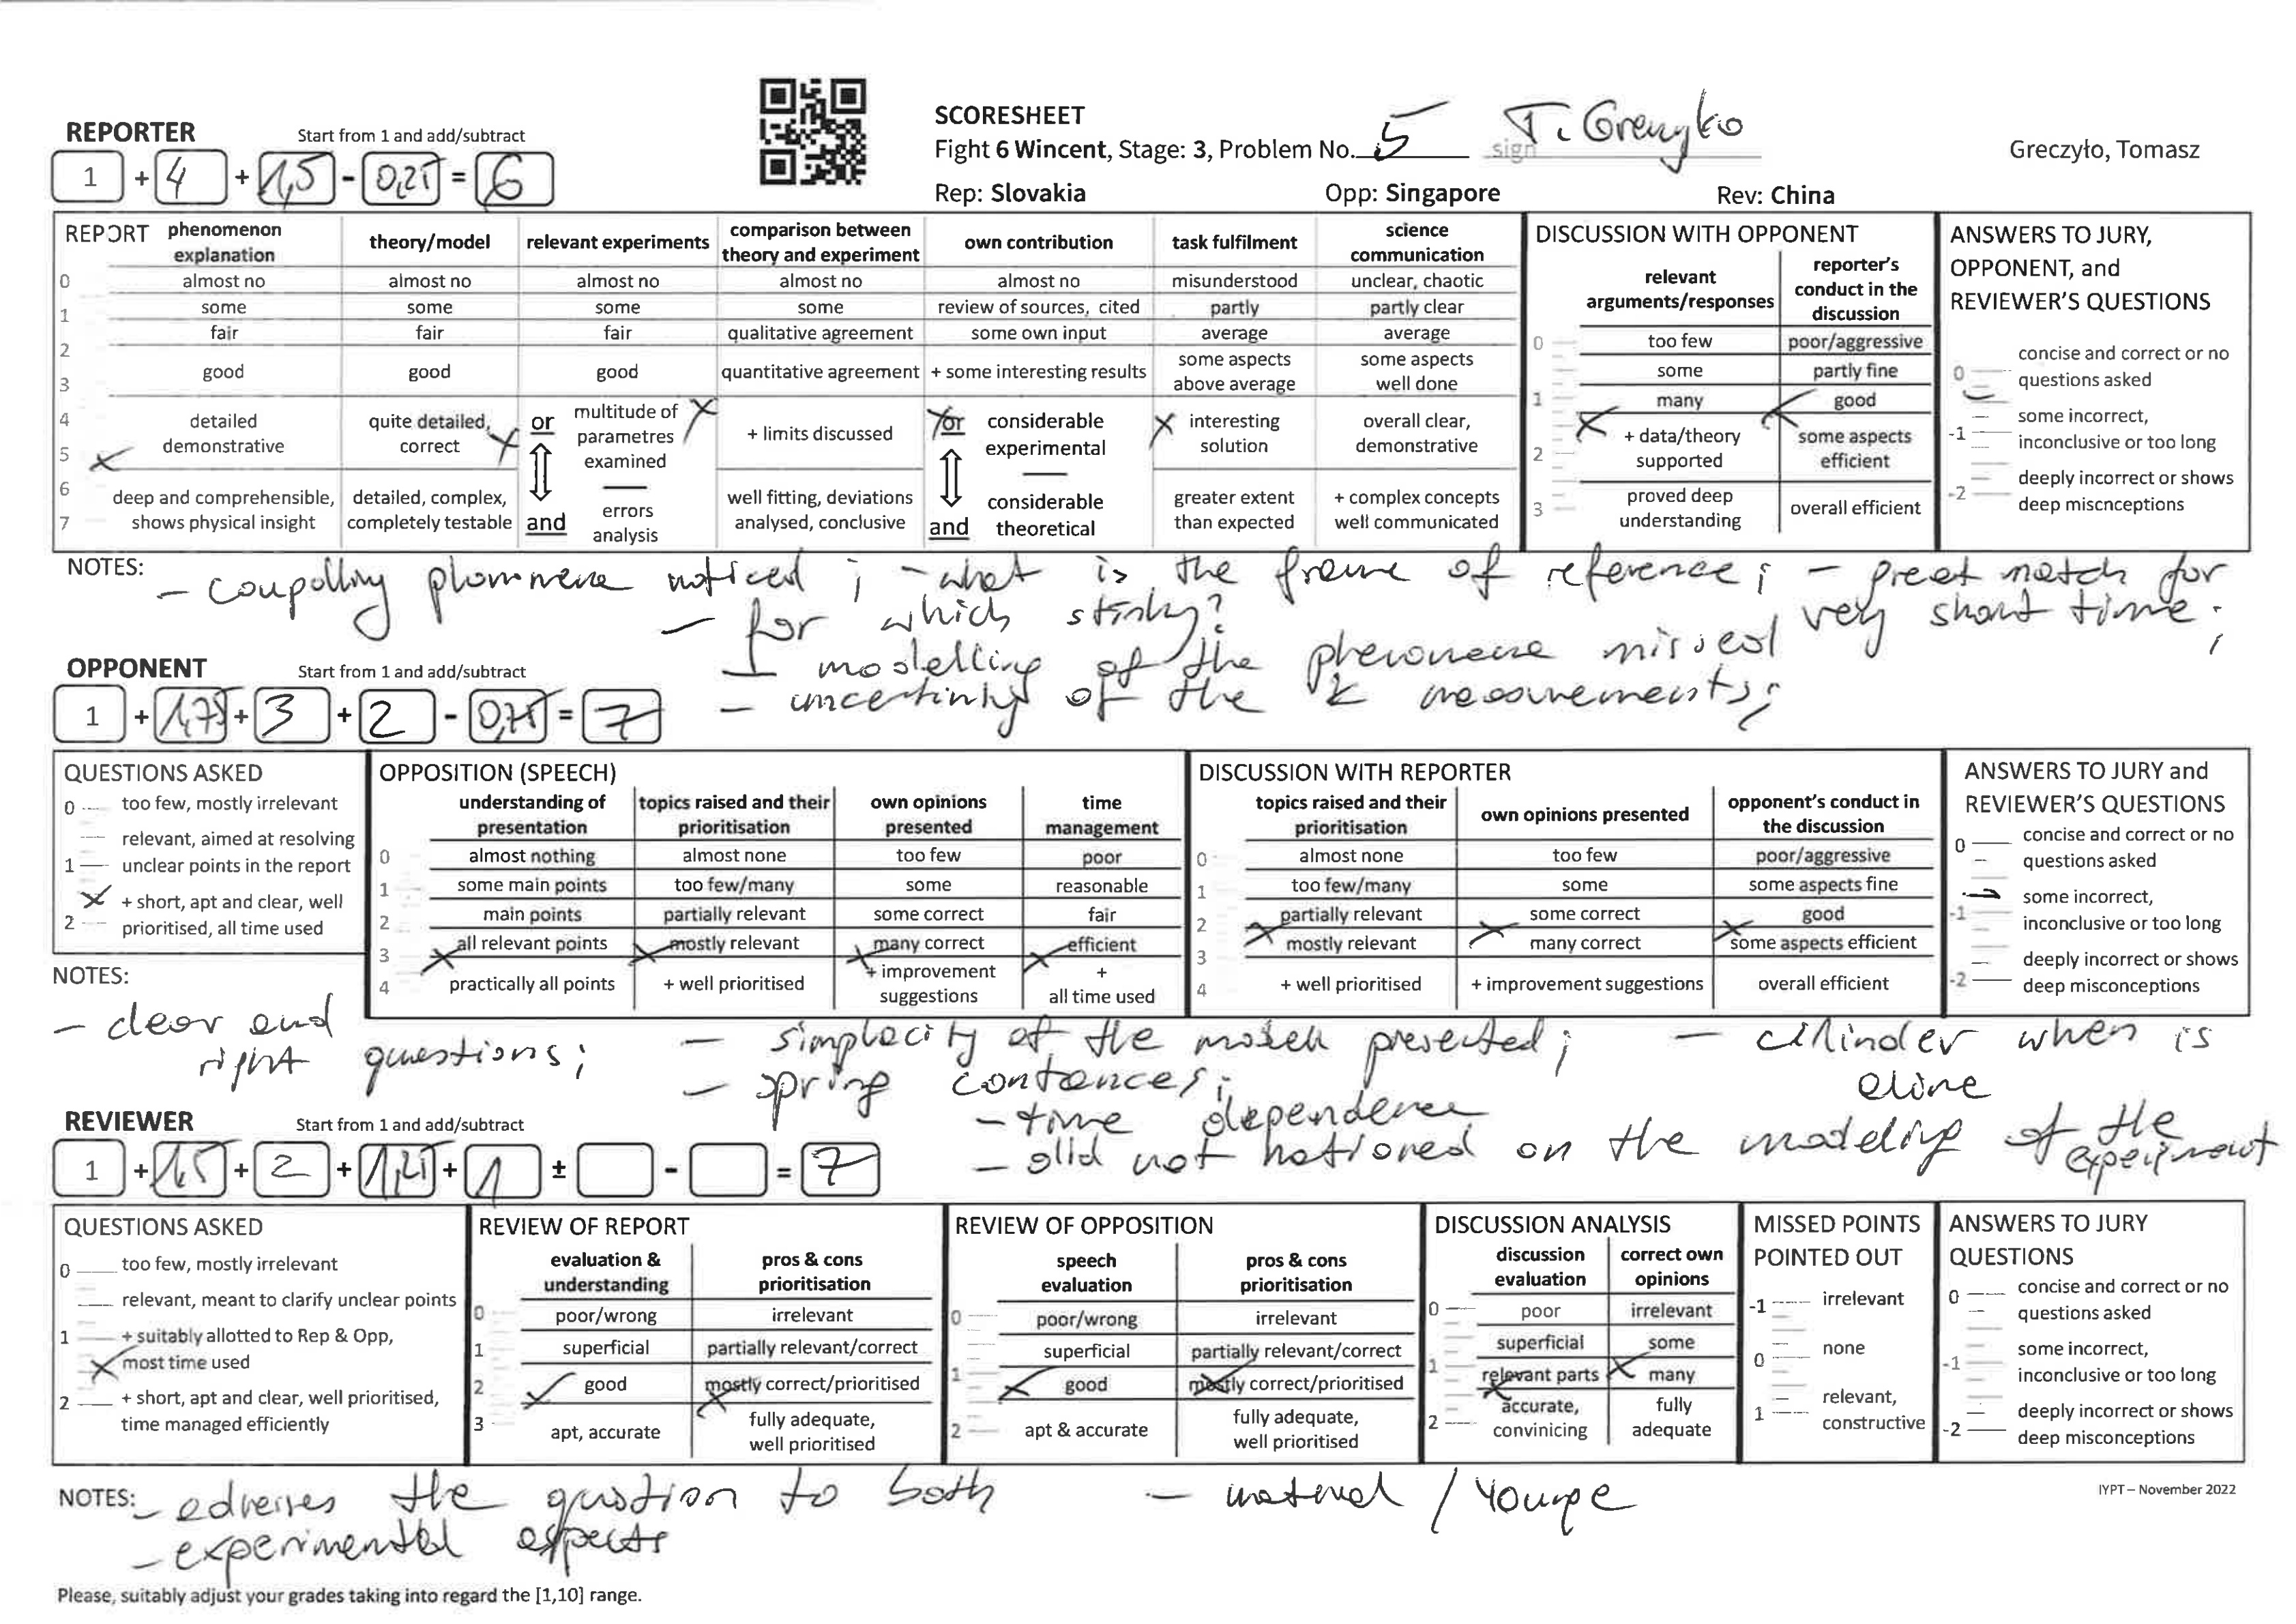 SCORESHEET
Fight 6 Wincent, Stage: 3, Problem No. 5 sign
Greczyło, Tomasz
Rep: Slovakia Opp: Singapore Rev: China
REPORTER Start from 1 and add/subtract
1 + 4 + 1,5 - 0,25 = 6
REPORT
phenomenon explanation | theory/model | relevant experiments | comparison between theory and experiment | own contribution | task fulfilment | science communication
0 almost no | almost no | almost no | almost no | almost no | misunderstood | unclear, chaotic
1 some | some | some | some | review of sources, cited | partly | partly clear
2 fair | fair | fair | qualitative agreement | some own input | average | average
3 good | good | good | quantitative agreement | + some interesting results | some aspects above average | some aspects well done
4 5 detailed demonstrative | quite detailed, correct | or multitude of parametres examined | + limits discussed | or considerable experimental | interesting solution | overall clear, demonstrative
6 7 deep and comprehensible, shows physical insight | detailed, complex, completely testable | and errors analysis | well fitting, deviations analysed, conclusive | and considerable theoretical | greater extent than expected | + complex concepts well communicated
DISCUSSION WITH OPPONENT
relevant arguments/responses | reporter's conduct in the discussion
0 too few | poor/aggressive
some | partly fine
1 many | good
2 + data/theory supported | some aspects efficient
3 proved deep understanding | overall efficient
ANSWERS TO JURY, OPPONENT, and REVIEWER'S QUESTIONS
0 concise and correct or no questions asked
-1 some incorrect, inconclusive or too long
-2 deeply incorrect or shows deep miscnceptions
NOTES:
- coupolling noticed ; - what is the frame of reference ; - great match for
- for which stinky? very short time ;
- modelling of the phenomena missed
- uncertinty of the k measurements ;
OPPONENT Start from 1 and add/subtract
1 + 1,75 + 3 + 2 - 0,75 = 7
QUESTIONS ASKED
0 too few, mostly irrelevant
relevant, aimed at resolving
1 unclear points in the report
+ short, apt and clear, well
2 prioritised, all time used
OPPOSITION (SPEECH)
understanding of presentation | topics raised and their prioritisation | own opinions presented | time management
0 almost nothing | almost none | too few | poor
1 some main points | too few/many | some | reasonable
2 main points | partially relevant | some correct | fair
3 all relevant points | mostly relevant | many correct | efficient
4 practically all points | + well prioritised | + improvement suggestions | + all time used
DISCUSSION WITH REPORTER
topics raised and their prioritisation | own opinions presented | opponent's conduct in the discussion
0 almost none | too few | poor/aggressive
1 too few/many | some | some aspects fine
2 partially relevant | some correct | good
3 mostly relevant | many correct | some aspects efficient
4 + well prioritised | + improvement suggestions | overall efficient
ANSWERS TO JURY and REVIEWER'S QUESTIONS
0 concise and correct or no questions asked
-1 some incorrect, inconclusive or too long
-2 deeply incorrect or shows deep misconceptions
NOTES:
- clear and right questions ;
- simplacity of the model presented ; - cilinder when is alone
- spring contances ;
- time dependence
- did not on the modeling of the experiment
REVIEWER Start from 1 and add/subtract
1 + 1,5 + 2 + 1,25 + 1 ± - = 7
QUESTIONS ASKED
0 too few, mostly irrelevant
relevant, meant to clarify unclear points
1 + suitably allotted to Rep & Opp,
most time used
2 + short, apt and clear, well prioritised,
time managed efficiently
REVIEW OF REPORT
evaluation & understanding | pros & cons prioritisation
0 poor/wrong | irrelevant
1 superficial | partially relevant/correct
2 good | mostly correct/prioritised
3 apt, accurate | fully adequate, well prioritised
REVIEW OF OPPOSITION
speech evaluation | pros & cons prioritisation
0 poor/wrong | irrelevant
superficial | partially relevant/correct
1 good | mostly correct/prioritised
2 apt & accurate | fully adequate, well prioritised
DISCUSSION ANALYSIS
discussion evaluation | correct own opinions
0 poor | irrelevant
superficial | some
1 relevant parts | many
2 accurate, convinicing | fully adequate
MISSED POINTS POINTED OUT
-1 irrelevant
0 none
1 relevant, constructive
ANSWERS TO JURY QUESTIONS
0 concise and correct or no questions asked
-1 some incorrect, inconclusive or too long
-2 deeply incorrect or shows deep misconceptions
NOTES:
- the question to both - material /
- experimental aspects
IYPT – November 2022
Please, suitably adjust your grades taking into regard the [1,10] range.